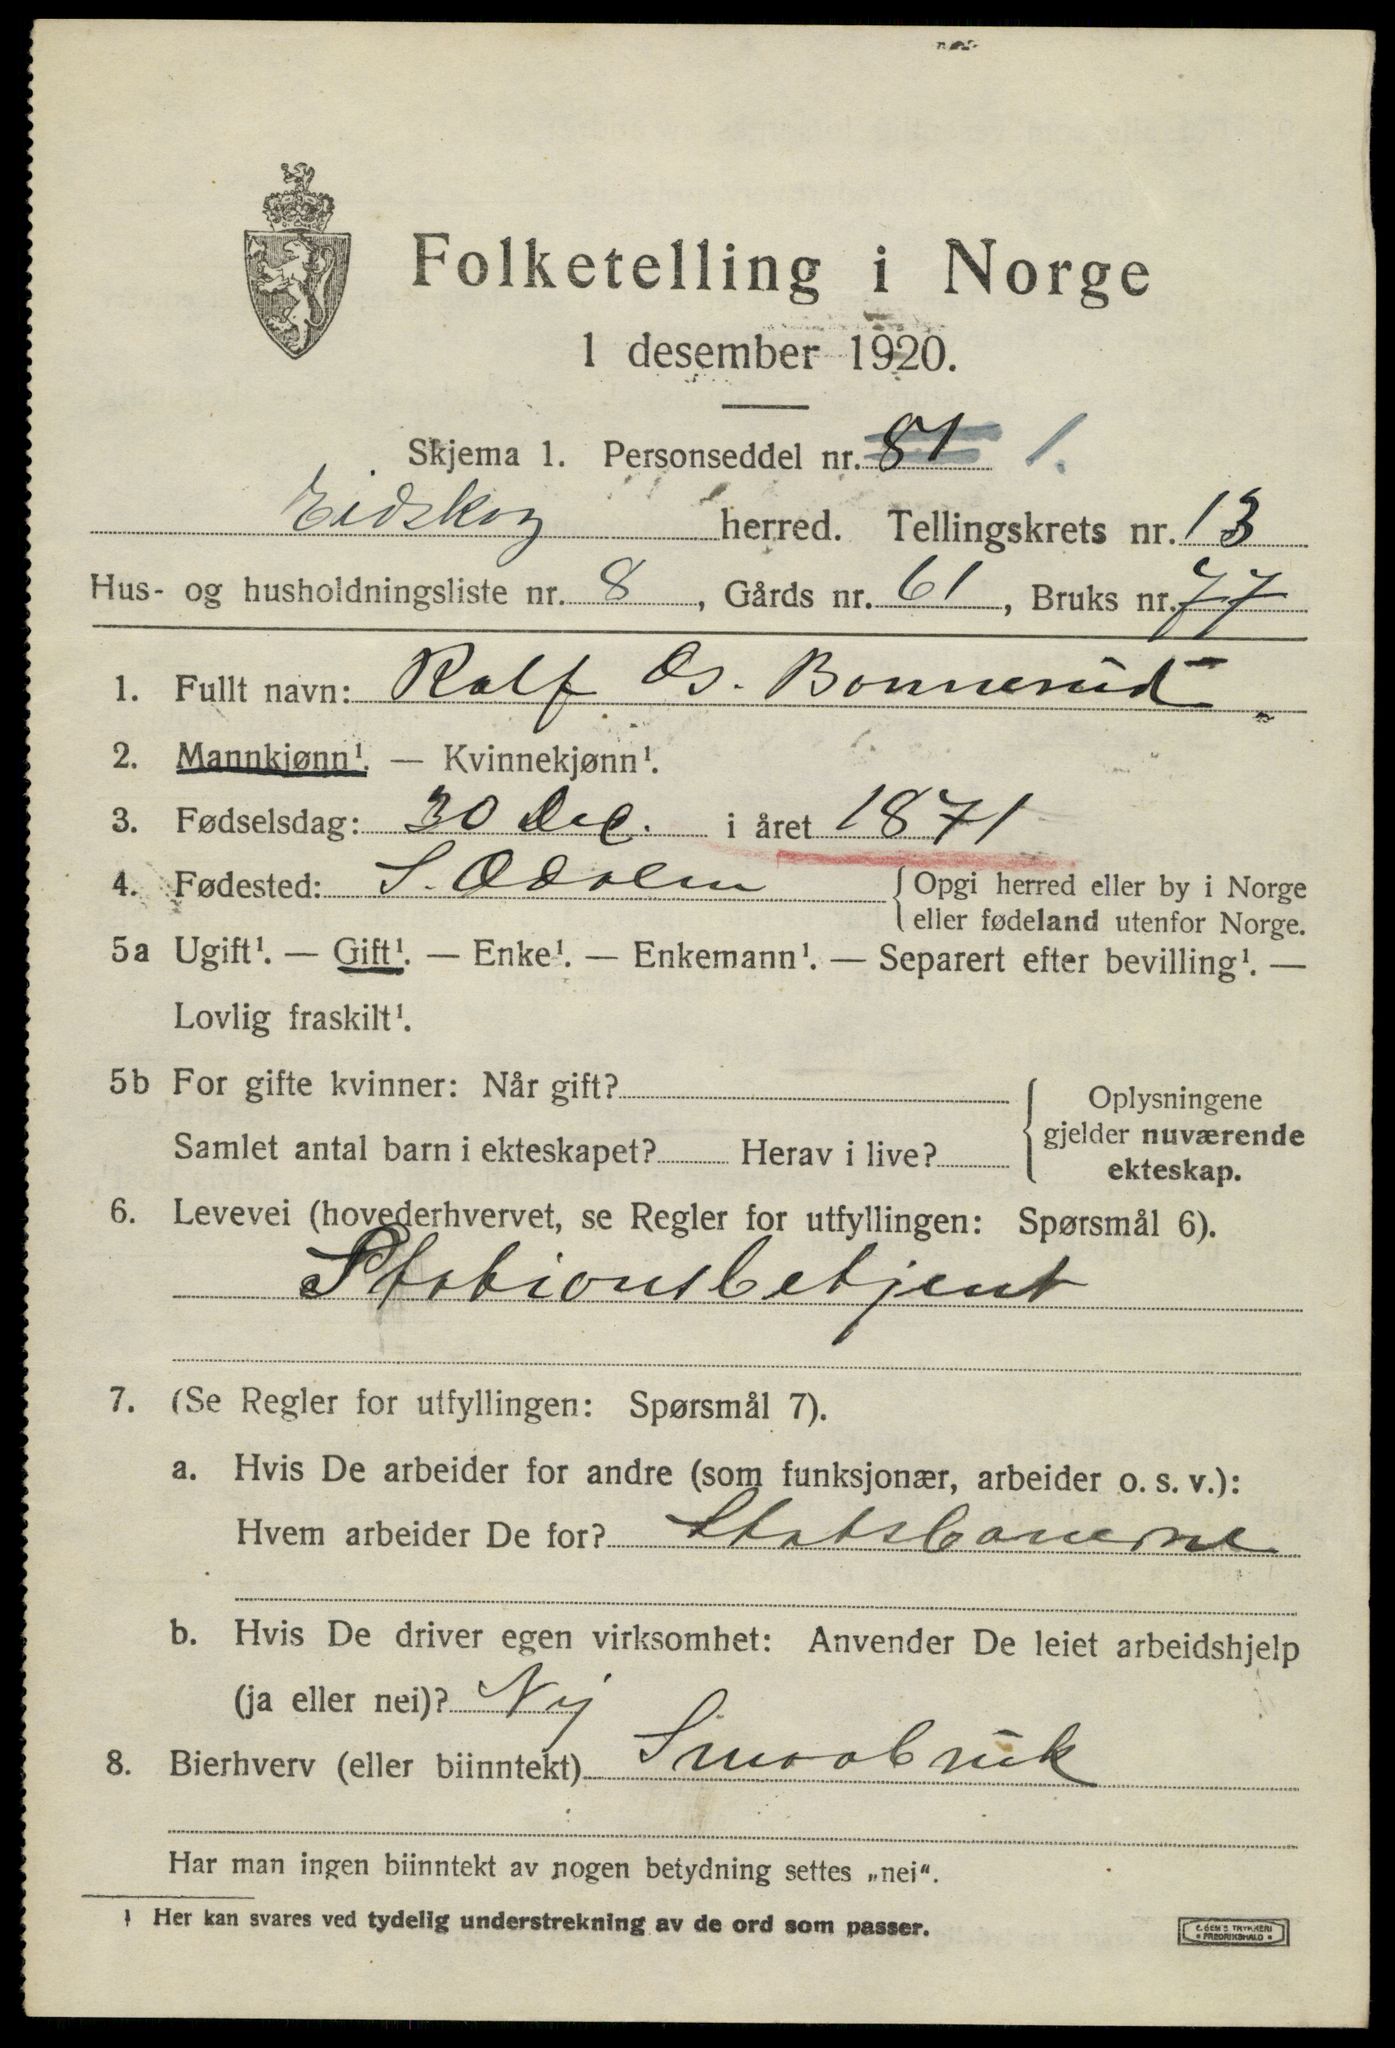 Folketelling i Norge
1 desember 1920.
Skjema 1. Personseddel nr. 81 1.
Eidskog herred. Tellingskrets nr. 13
Hus- og husholdningsliste nr. 8, Gårds nr. 61, Bruks nr. 77
1. Fullt navn: Ralf Os. Bonnerud
2. Mannkjønn¹. — Kvinnekjønn¹.
3. Fødselsdag: 30 Dec. i året 1871
4. Fødested: S. Odalen {Opgi herred eller by i Norge
eller fødeland utenfor Norge.
5a Ugift¹. — Gift¹. — Enke¹. — Enkemann¹. — Separert efter bevilling¹. —
Lovlig fraskilt¹.
5b For gifte kvinner: Når gift?
Samlet antal barn i ekteskapet? Herav i live?
Oplysningene
gjelder nuværende
ekteskap.
6. Levevei (hovederhvervet, se Regler for utfyllingen: Spørsmål 6).
Stationsbetjent
7. (Se Regler for utfyllingen: Spørsmål 7).
a. Hvis De arbeider for andre (som funksjonær, arbeider o. s. v.):
Hvem arbeider De for? Statsbanerne
b. Hvis De driver egen virksomhet: Anvender De leiet arbeidshjelp
(ja eller nei)? Nej
8. Bierhverv (eller biinntekt) Smaabruk
Har man ingen biinntekt av nogen betydning settes „nei“.
1 Her kan svares ved tydelig understrekning av de ord som passer.
TRYKKERI
FREDRIKSHALD